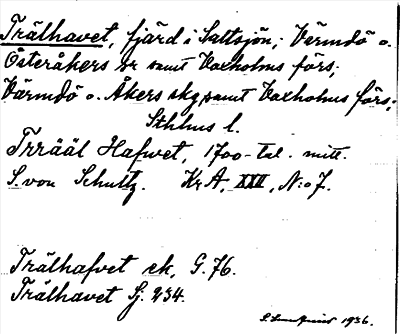 Trälhavet, fjärd i Saltsjön; Värmdö o.
Österåkers sr samt Vaxholms förs;
Värmdö o. Åkers skg, samt Vaxholms förs;
Sthlms l.
Trrääl Hafwet, 1700-tal. mitt.
S. von Schultz. KrA, XXII, N:o 7.
Trälhafvet ek, G. 76.
Trälhavet Sj. 234.
1936.